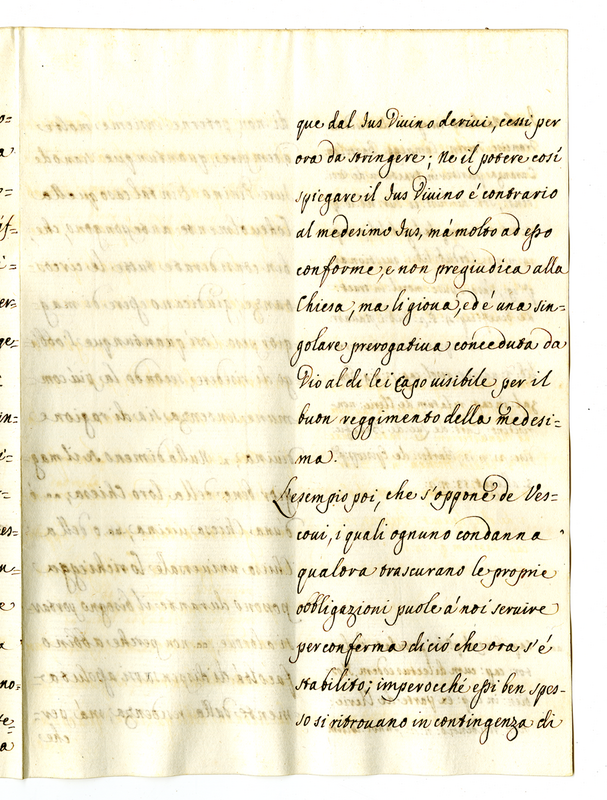 que dal Jus Divino derivi, cessi per
ora da stringere; Ne il potere così
spiegare il Jus Divino é contrario
al medesimo Jus, má molto ad esso
conforme, e non pregiudica alla
Chiesa, ma li giova, ed é una sin=
golare prerogativa conceduta da
Dio al di lei capo visibile per il
buon reggimento della medesi=
ma.
L'esempio poi, che s'oppone de Ves=
covi, i quali ognuno condanna
qualora trascurano le proprie
obbligazioni puole á noi servire
per conferma di ció che ora s'é
stabilito; imperocché essi ben spes=
so si ritrovano in contingenza di